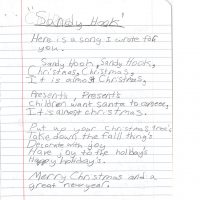 "Sandy Hook"
Here is a song I wrote for
you.
Sandy Hook, Sandy Hook,
Christmas, Christmas,
It is almost Christmas,
Presents, Presents
Children want santa to
It is almost christmas.
Put up your Christmas tree's
Take down the fall thing's
Decorate with joy
Have joy to the holiday's
Happy holiday's.
Merry Christmas and a
great new year.